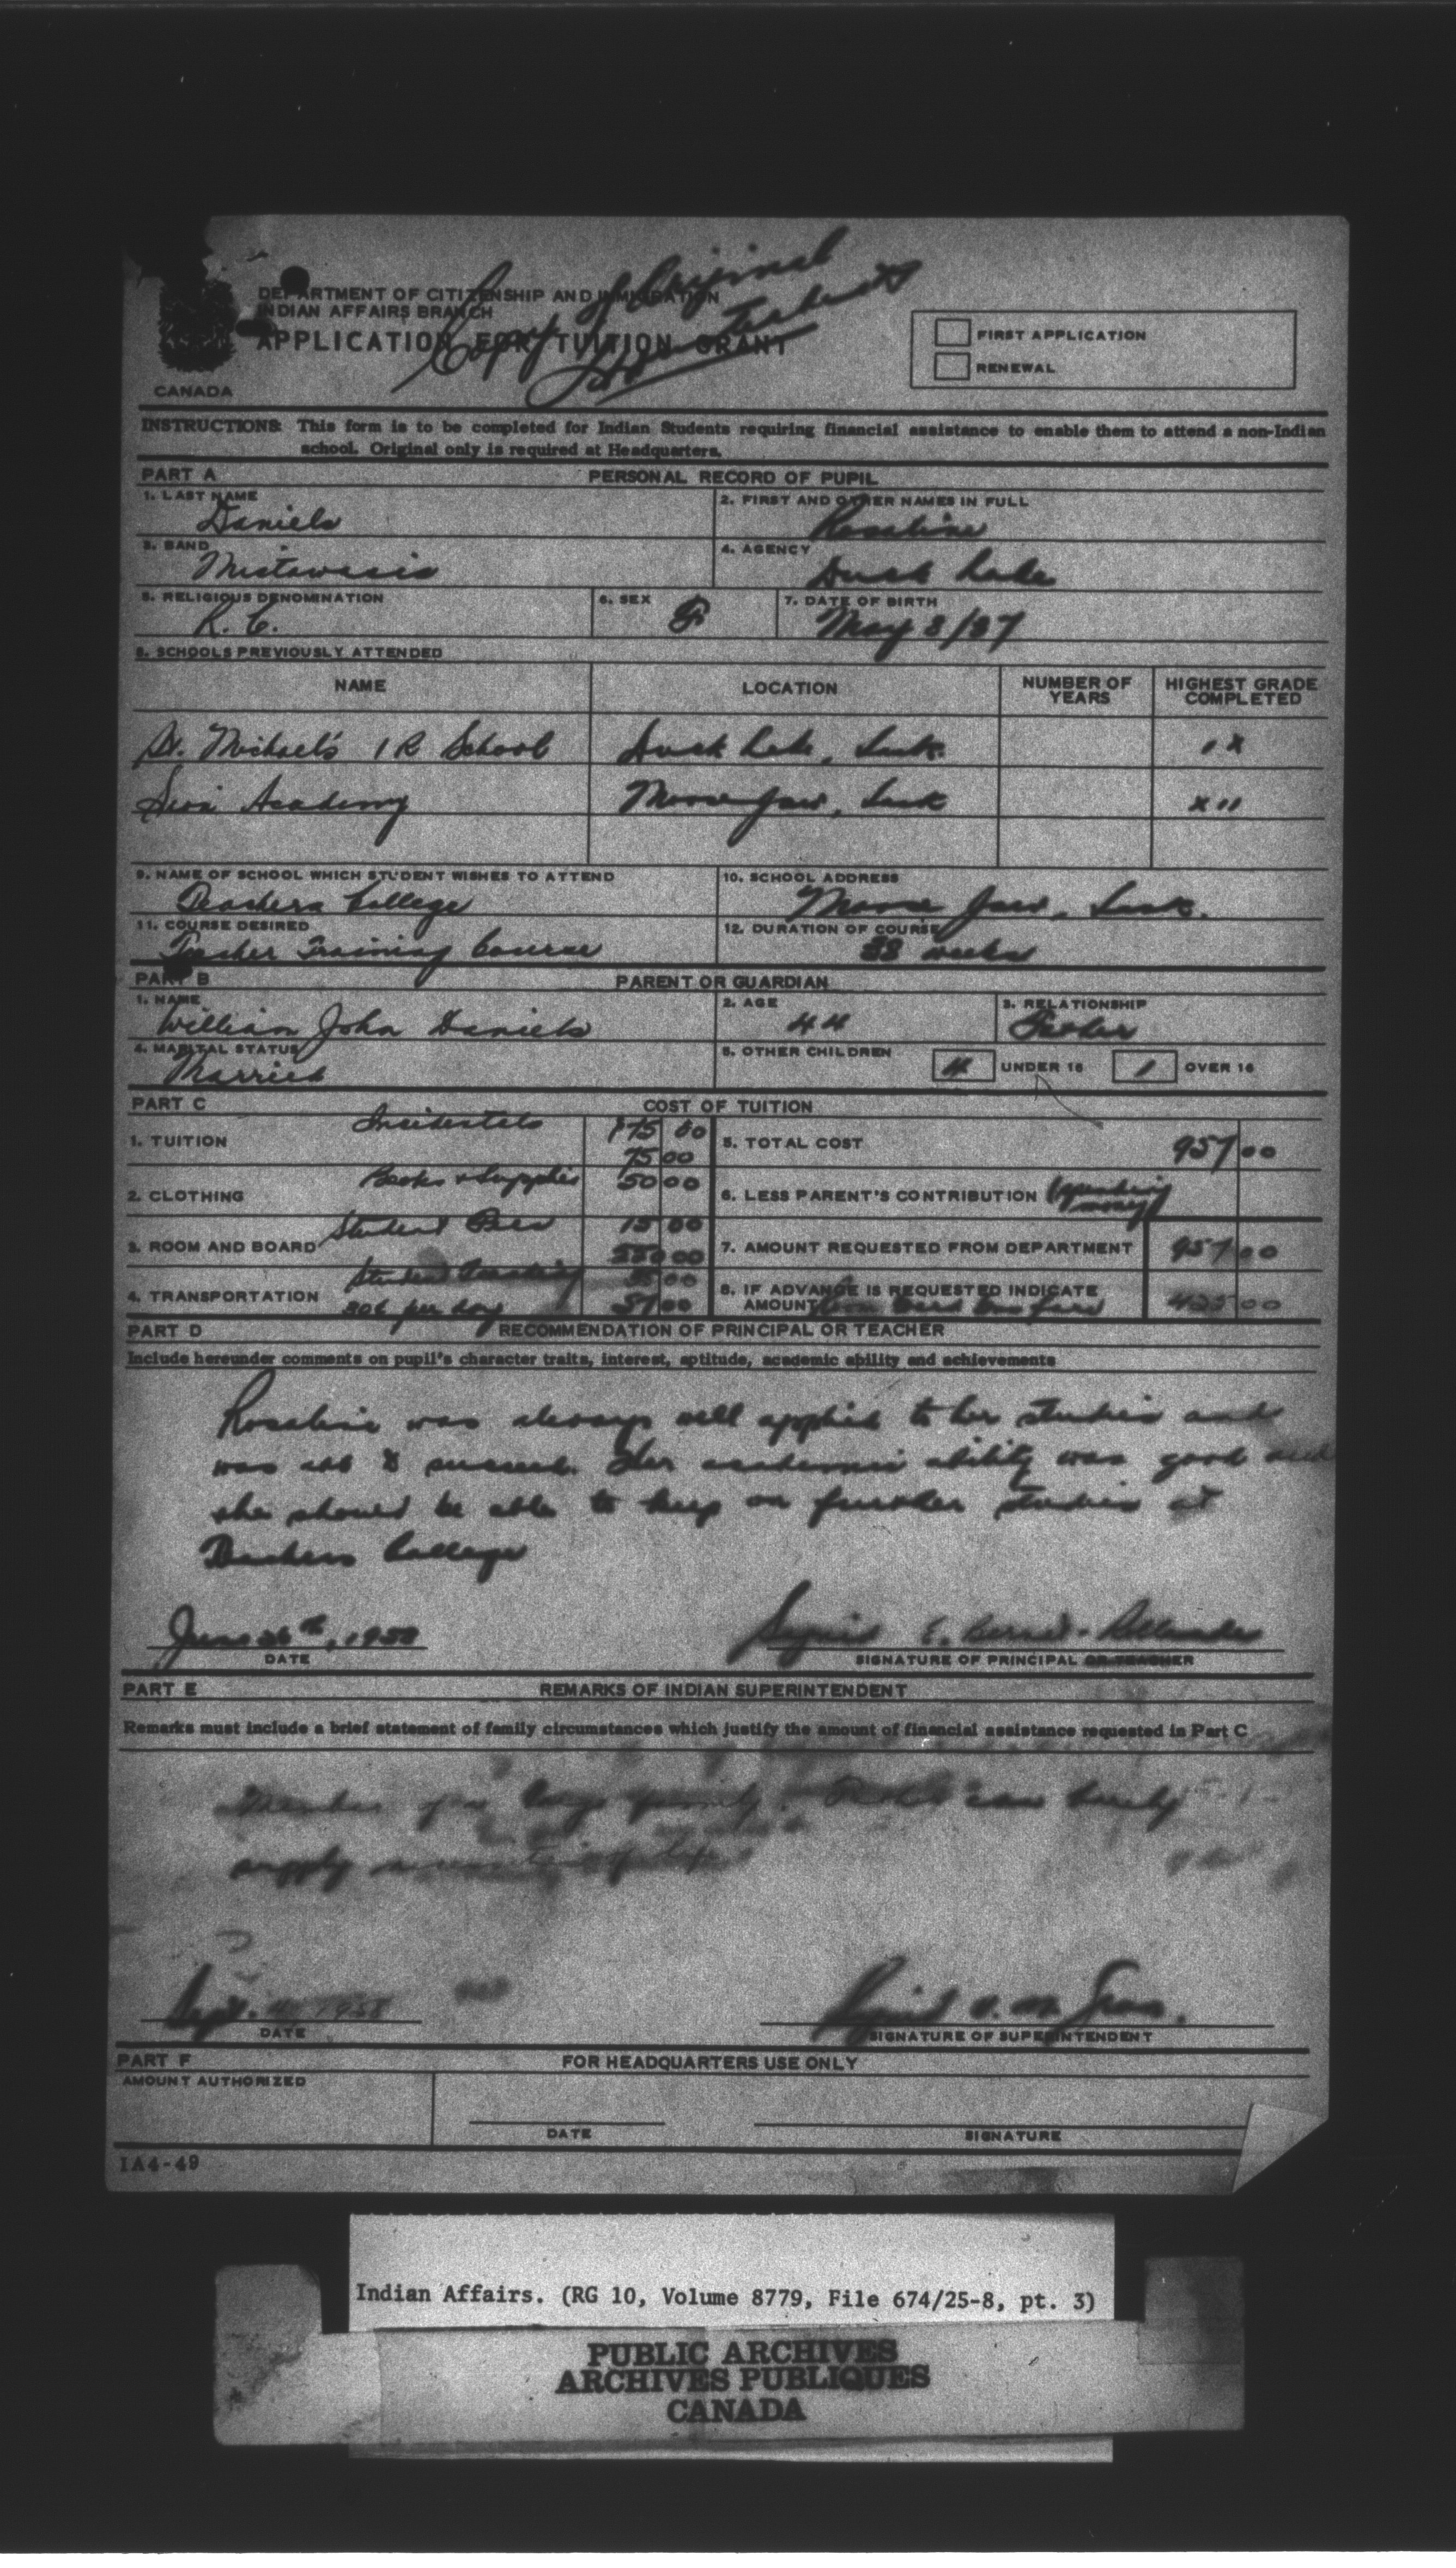 Copy of Original
DEPARTMENT OF CITIZENSHIP AND IMMIGRATION
INDIAN AFFAIRS BRANCH
APPLICATION FOR TUITION GRANT
CANADA
FIRST APPLICATION
RENEWAL
INSTRUCTIONS: This form is to be completed for Indian Students requiring financial assistance to enable them to attend a non-Indian
school. Original only is required at Headquarters.
PART A PERSONAL RECORD OF PUPIL
1. LAST NAME 2. FIRST AND OTHER NAMES IN FULL
Daniels Rosaline
3. BAND 4. AGENCY
Mistawasis Duck Lake
5. RELIGIOUS DENOMINATION 6. SEX 7. DATE OF BIRTH
R. C. F May 3/37
8. SCHOOLS PREVIOUSLY ATTENDED
NAME LOCATION NUMBER OF YEARS HIGHEST GRADE COMPLETED
St. Michael's I R School Duck Lake, Sask. IX
Sion Academy Moose Jaw, Sask XII
9. NAME OF SCHOOL WHICH STUDENT WISHES TO ATTEND 10. SCHOOL ADDRESS
Teachers College Moose Jaw, Sask.
11. COURSE DESIRED 12. DURATION OF COURSE
Teacher Training Course 38 weeks
PART B PARENT OR GUARDIAN
1. NAME 2. AGE 3. RELATIONSHIP
William John Daniels 44 Father
4. MARITAL STATUS 5. OTHER CHILDREN 4 UNDER 16 1 OVER 16
Married
PART C COST OF TUITION
Incidentals 175 00
1. TUITION 75 00 5. TOTAL COST 957 00
Books & Supplies 50 00
2. CLOTHING 6. LESS PARENT'S CONTRIBUTION (spending money)
Student Fees 15 00
3. ROOM AND BOARD 550 00 7. AMOUNT REQUESTED FROM DEPARTMENT 957 00
Student 00
4. TRANSPORTATION 30¢ per day 57 00 8. IF ADVANCE IS REQUESTED INDICATE
AMOUNT 425 00
PART D RECOMMENDATION OF PRINCIPAL OR TEACHER
Include hereunder comments on pupil's character traits, interest, aptitude, academic ability and achievements
Rosaline was always well applied to her studies and
was able to succeed. Her academic ability was good and
she should be able to keep on further studies at
Teachers College
June 26th, 1958 Signed E.
DATE SIGNATURE OF PRINCIPAL OR TEACHER
PART E REMARKS OF INDIAN SUPERINTENDENT
Remarks must include a brief statement of family circumstances which justify the amount of financial assistance requested in Part C
Member of a large family. can barely
supply necessities of life
Sept. 1958 Signed
DATE SIGNATURE OF SUPERINTENDENT
PART F FOR HEADQUARTERS USE ONLY
AMOUNT AUTHORIZED
DATE SIGNATURE
IA4-49
Indian Affairs. (RG 10, Volume 8779, File 674/25-8, pt. 3)
PUBLIC ARCHIVES
ARCHIVES PUBLIQUES
CANADA